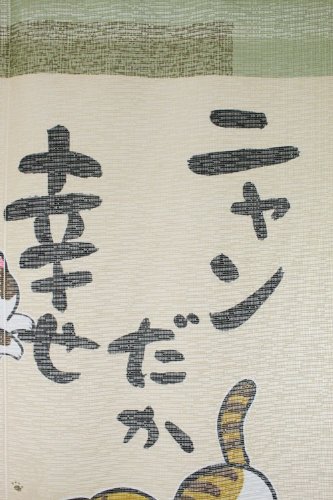 ニャン
だか
幸せ